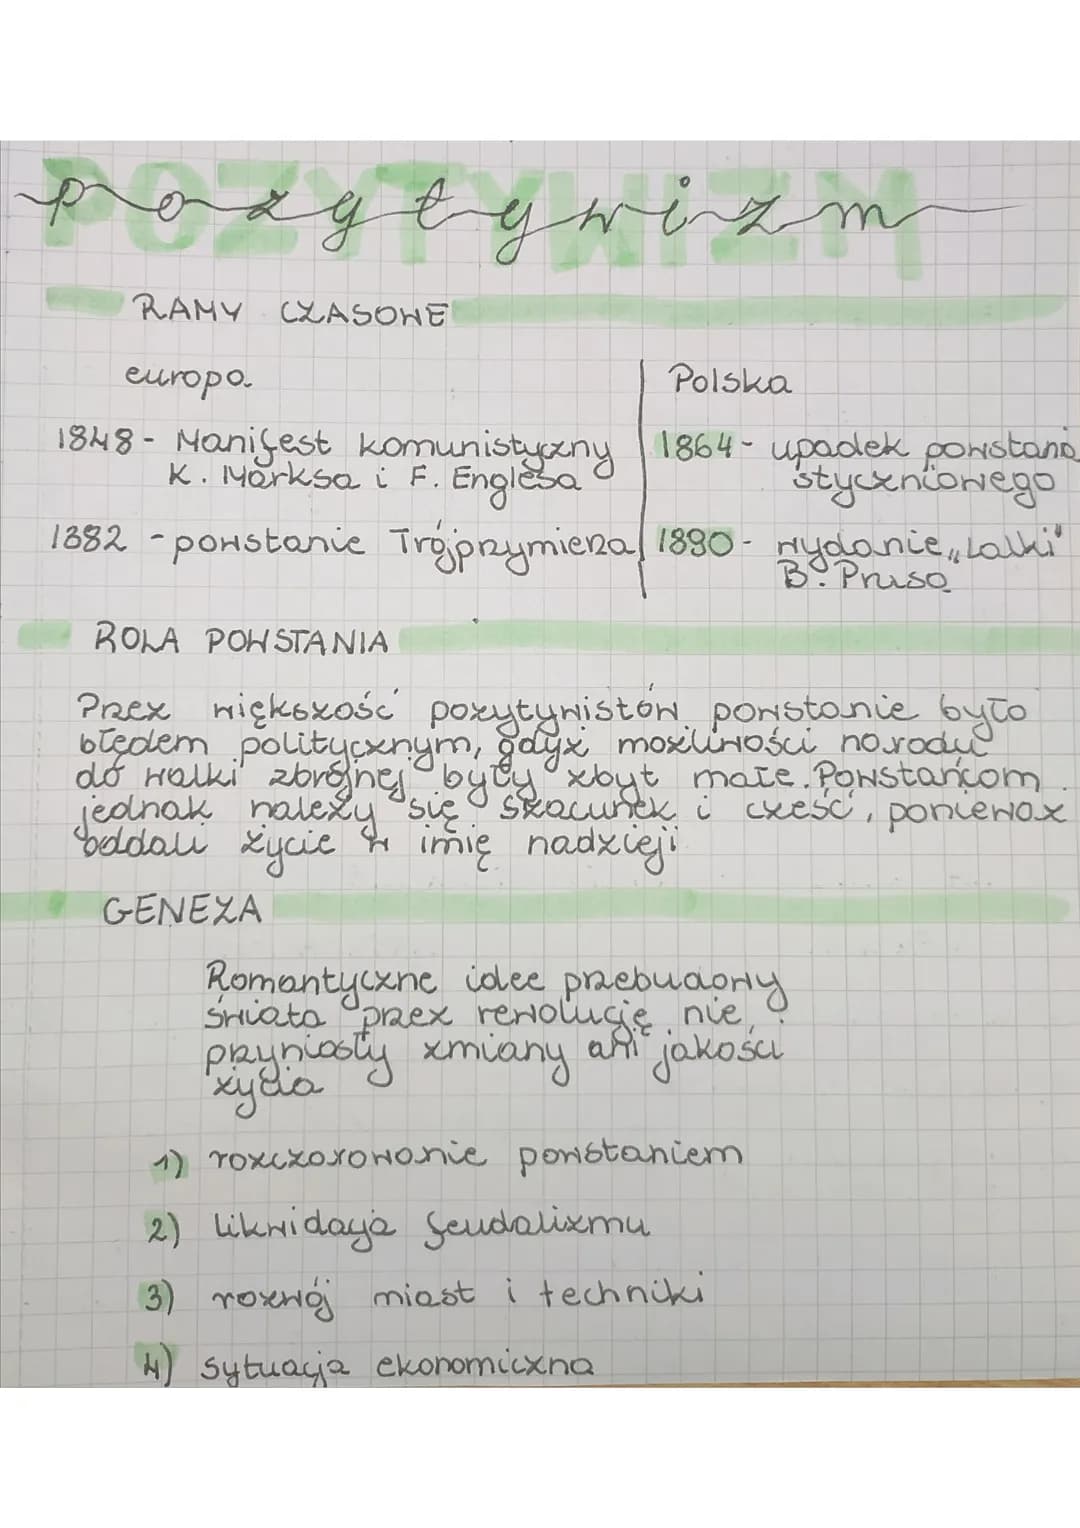 POZYTYWIZM
pozytywizm
RAMY CZASOWE
europa
Polska
1848 - Manifest komunistyczny
K. Marksa i F. Englesa
1864 - upadek powstania
styczniowego
1882 - powstanie Trójprzymierza
1890 - wydanie „Lalki"
B. Prusa
ROLA POWSTANIA
Przez większość pozytywistów powstanie było
błędem politycznym, gdyż możliwości narodu
do walki zbrojnej były zbyt małe. Powstańcom
jednak należy się szacunek i cześć, ponieważ
oddali życie w imię nadzieji
GENEZA
Romantyczne idee przebudowy
świata przez rewolucję nie
przyniosły zmiany ani jakości
życia
1) rozczarowanie powstaniem
2) likwidacja feudalizmu
3) rozwój miast i techniki
4) sytuacja ekonomiczna